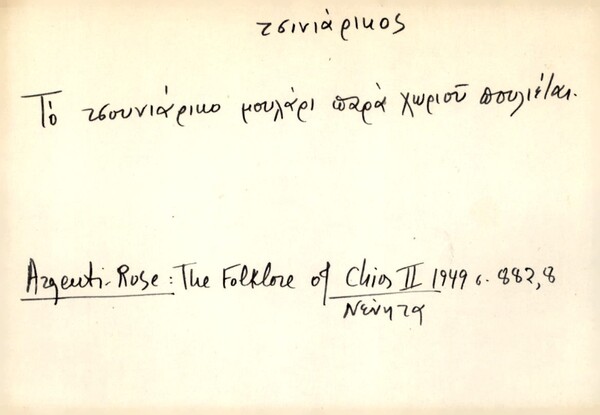 τσινιάρικος
Τό τσουνιάρικο μουλάρι παρά χωριοῦ πουλιέται.
Argenti-Rose: The Folklore of Chios II 1949 σ. 882,8
Νένητα